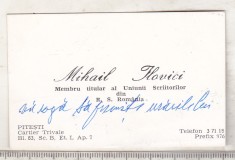 Mihail Ilovici
Membru titular al Uniunii Scriitorilor
din
R. S. România
vă rogă să primiți urările lui
PITEȘTI
Cartier Trivale
Bl. E1, Sc. B, Et. 1, Ap. 7
Telefon 2-71 15
Prefix 976